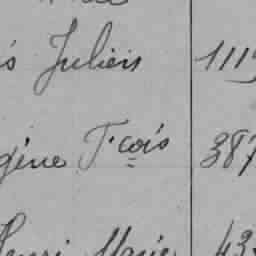 s Julien 1115
gène F.çois 387
Henri Marie 43